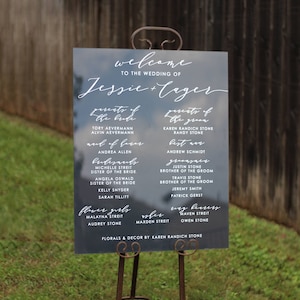 welcome
TO THE WEDDING OF
Jessie + Cager
parents of
the bride
TORY AEVERMANN
ALVIN AEVERMANN
maid of honor
ANDREA ALLEN
bridesmaids
MICHELLE STREIT
SISTER OF THE BRIDE
ANGELA OSWALD
SISTER OF THE BRIDE
KELLY SNYDER
SARAH TILLITT
parents of
the groom
KAREN KANDICH STONE
RANDY STONE
best man
ANDREW SCHMIDT
groomsmen
JUSTIN STONE
BROTHER OF THE GROOM
TRAVIS STONE
BROTHER OF THE GROOM
JEREMY SMITH
PATRICK GERST
flower girls
MALAYNA STREIT
AUDREY STONE
usher
MARDEN STONE
ring bearers
MAVEN STREIT
OWEN STONE
FLORALS & DECOR BY KAREN KANDICH STONE